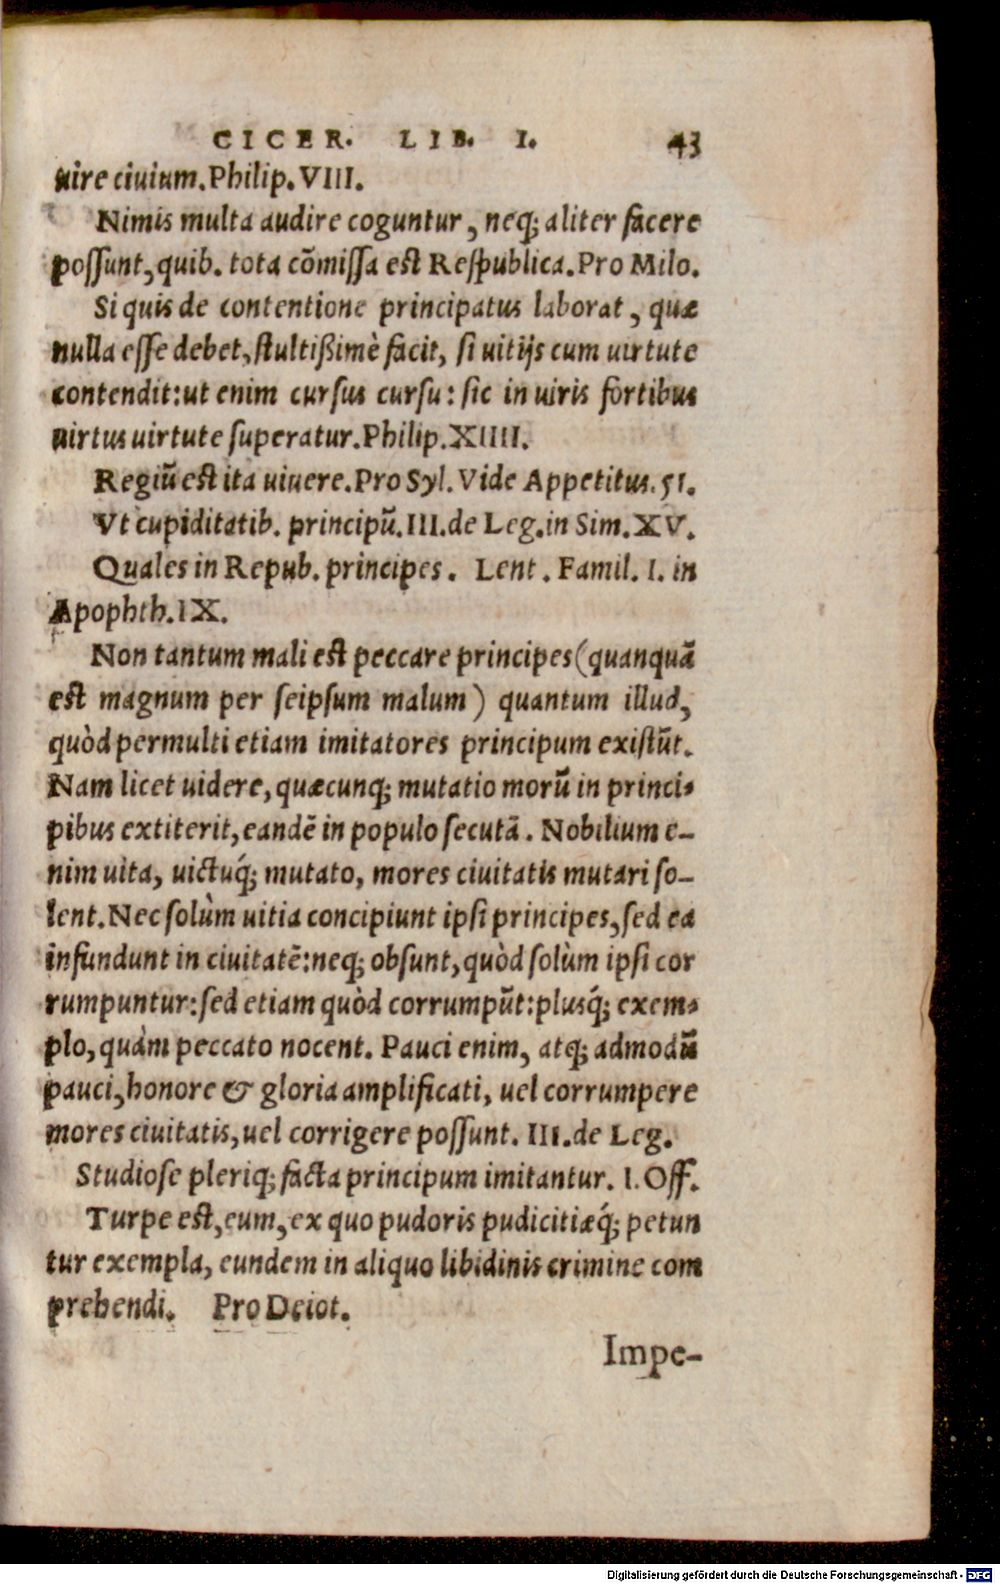 CICER. LIB. I. 43
uire ciuium. Philip. VIII.
Nimis multa audire coguntur, neq; aliter facere
possunt, quib. tota cõmissa est Respublica. Pro Milo.
Si quis de contentione principatus laborat, quæ
nulla esse debet, stultißimè facit, si uitijs cum uirtute
contendit: ut enim cursus cursu: sic in uiris fortibus
uirtus uirtute superatur. Philip. XIIII.
Regiũ est ita uiuere. Pro Syl. Vide Appetitus. 51.
Vt cupiditatib. principũ. III. de Leg. in Sim. XV.
Quales in Repub. principes. Lent. Famil. I. in
Apophth. IX.
Non tantum mali est peccare principes (quanquã
est magnum per seipsum malum) quantum illud,
quòd permulti etiam imitatores principum existũt.
Nam licet uidere, quæcunq; mutatio morũ in princi-
pibus extiterit, eandẽ in populo secutã. Nobilium e-
nim uita, uictuq́; mutato, mores ciuitatis mutari so-
lent. Nec solùm uitia concipiunt ipsi principes, sed ea
infundunt in ciuitatẽ: neq; obsunt, quòd solùm ipsi cor
rumpuntur: sed etiam quòd corrumpũt: plusq́; exem-
plo, quàm peccato nocent. Pauci enim, atq; admodũ
pauci, honore & gloria amplificati, uel corrumpere
mores ciuitatis, uel corrigere possunt. III. de Leg.
Studiose pleriq; facta principum imitantur. I. Off.
Turpe est, eum, ex quo pudoris pudicitiæq́; petun
tur exempla, eundem in aliquo libidinis crimine com
prehendi. Pro Deiot.
Impe-
Digitalisierung gefördert durch die Deutsche Forschungsgemeinschaft - DFG